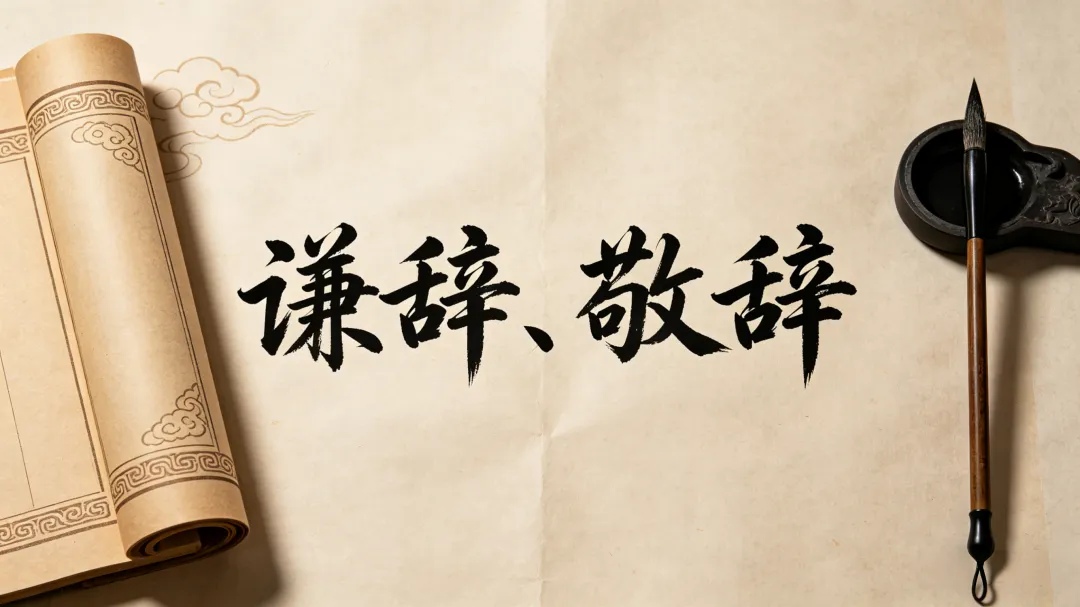 谦辞、敬辞